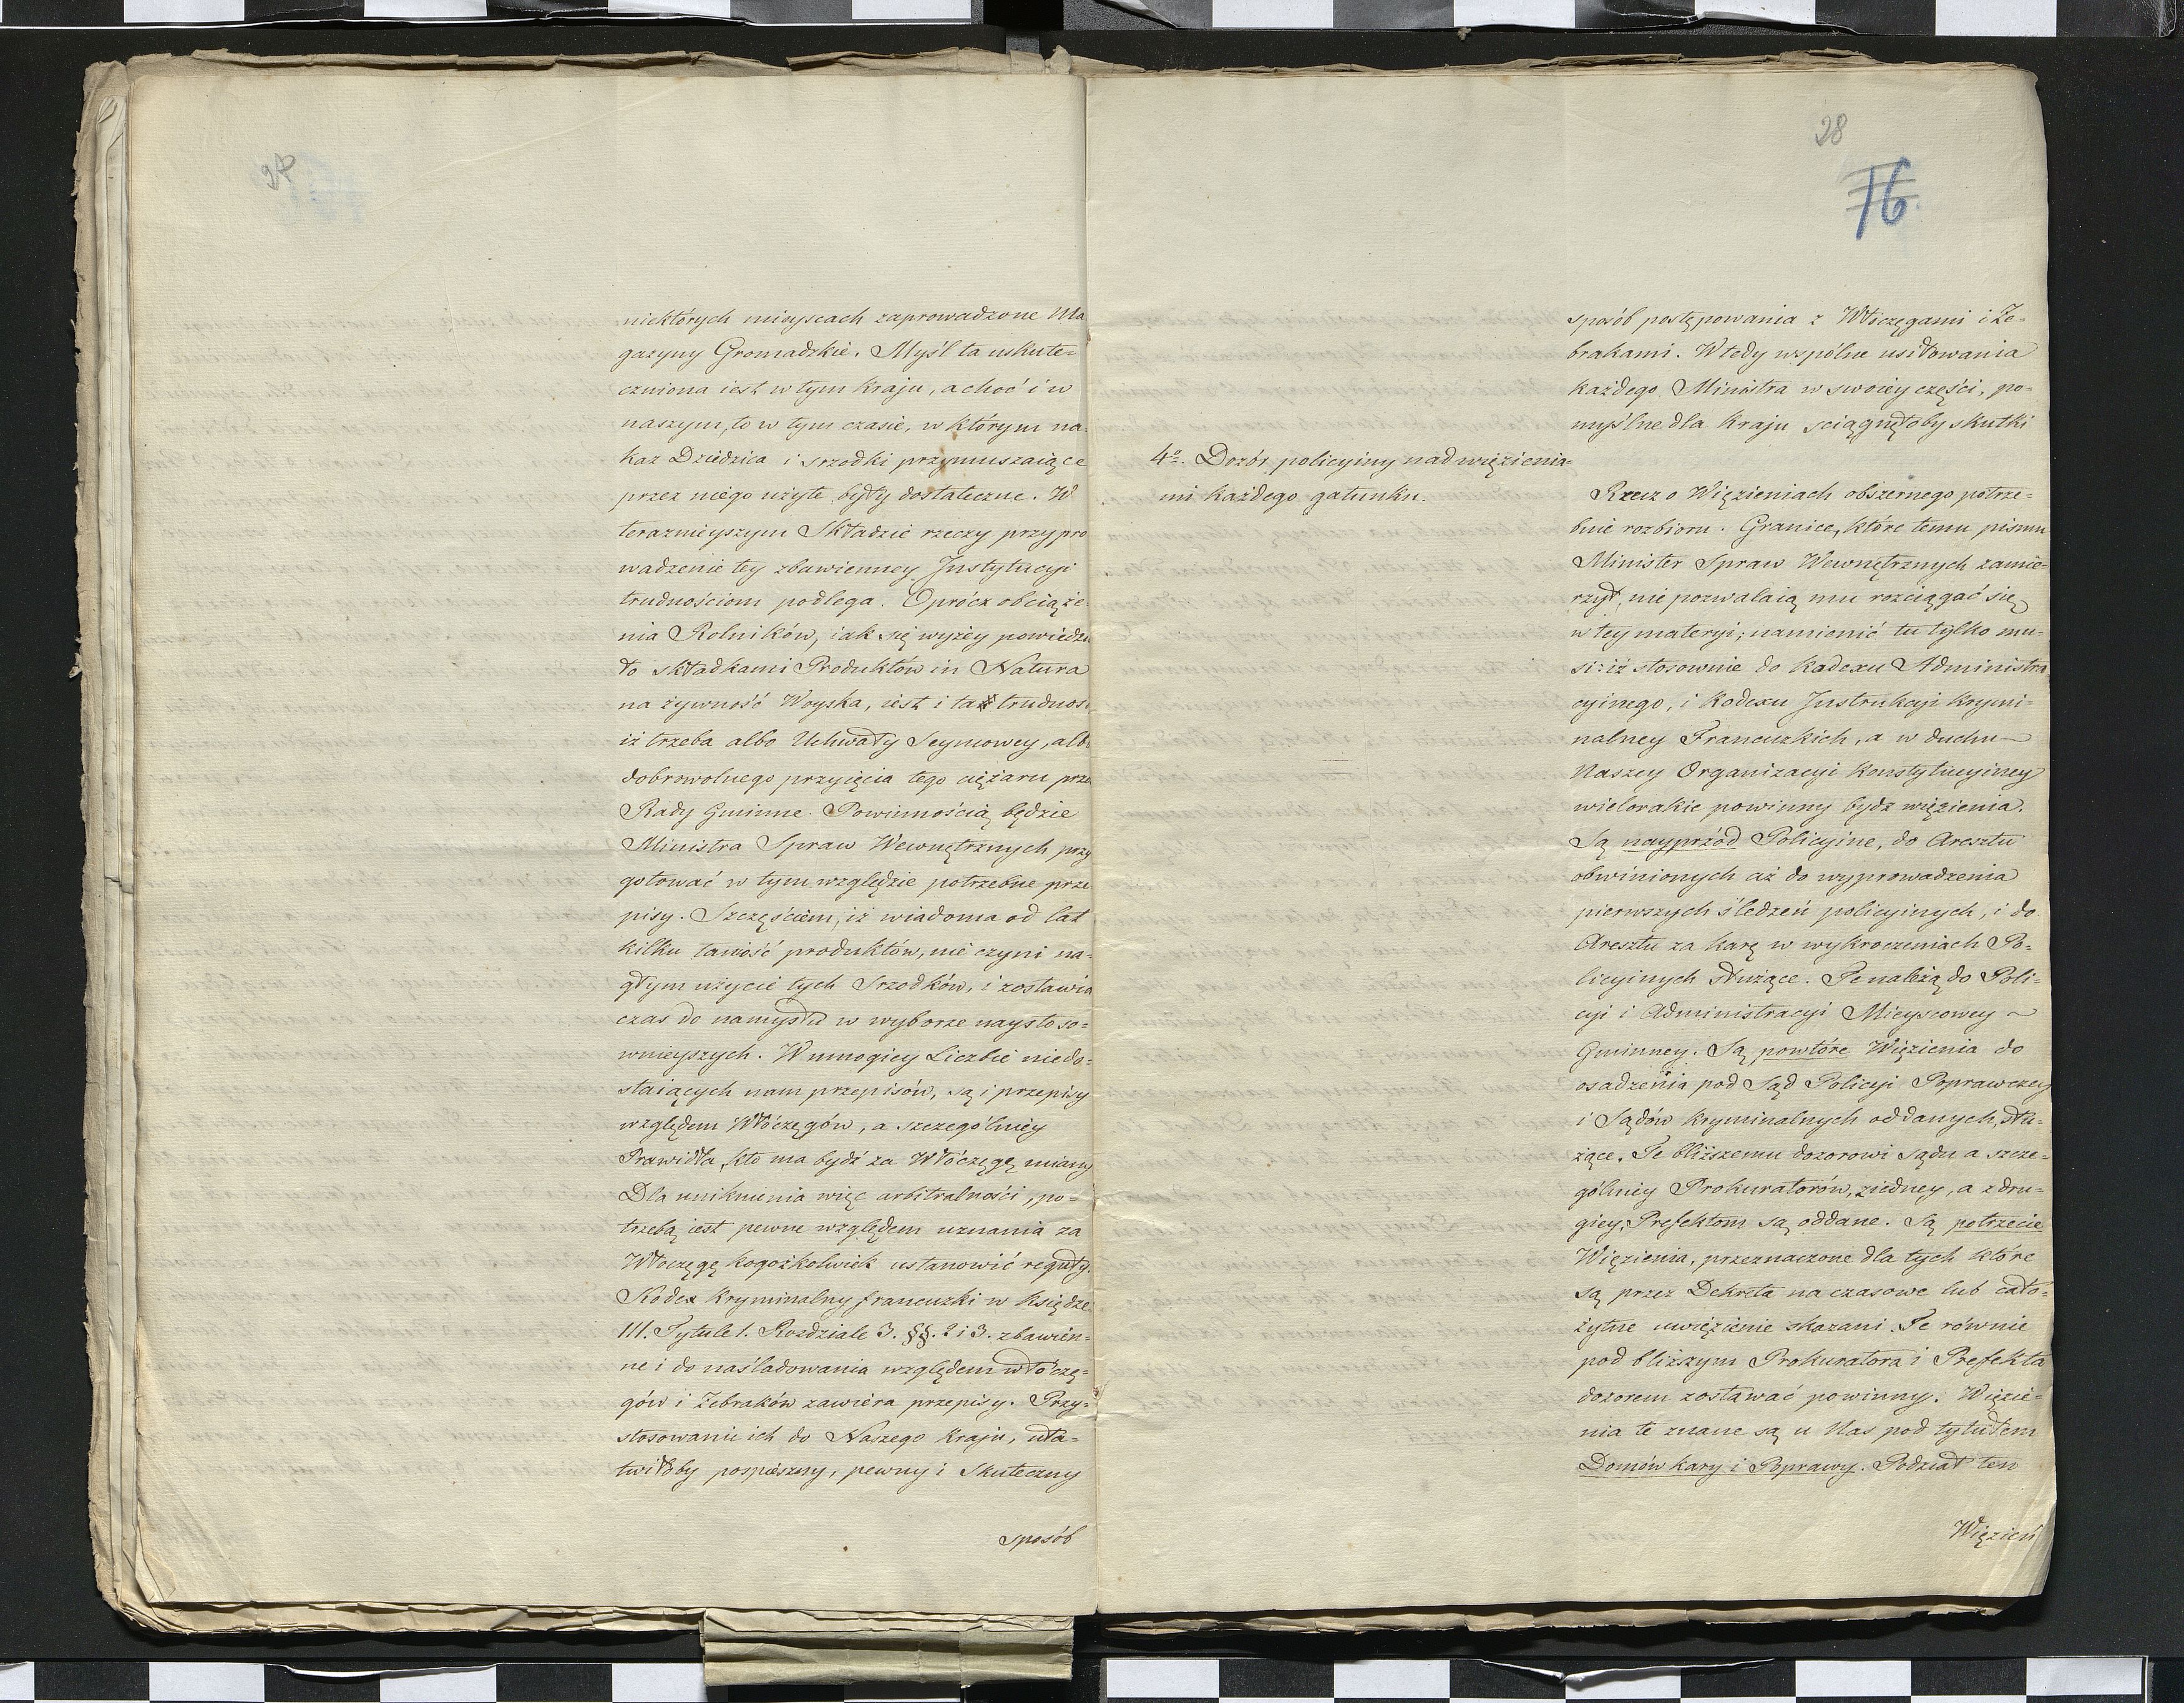 niektórych mieyscach zaprowadzone Ma
gazyny Gromadzkie. Myśl ta uskute=
czniona iest w tym kraju, a choć i w
naszym, to w tym czasie, w którym na=
kaz Dziedzica i srzodki przymuszaiące
przez niego użyte były dostateczne. W
teraznieyszym Składzie rzeczy przypro
wadzenie tey zbawienney Instytucyi
trudnościom podlega. Oprócz obciąże=
nia Rolników, iak się wyżey powiedzia
ło składkami Produktów in Natura
na żywność Woyska, iest i ta trudność
iż trzeba albo Uchwały Seymowey, albo
dobrowolnego przyięcia tego ciężaru prze
Rady Gminne. Powinnością będzie
Ministra Spraw Wewnętrznych przy
gotować w tym względzie potrzebne prze
pisy. Szczęściem, iż wiadoma od lat
kilku taniość produktów, nie czyni na=
głym użycie tych Srzodków, i zostawia
czas do namysłu w wyborze naystoso=
wnieyszych. W mnogiey Liczbie niedo=
staiących nam przepisów, są i przepisy
względem Włóczęgów, a szczególniey
Prawidła, kto ma bydź za Włóczęgę miany
Dla uniknienia więc arbitralności, po=
trzebą iest pewne względem uznania za
Włoczęgę kogożkolwiek ustanowić reguły.
Kodex Kryminalny francuzki w księdze
III. Tytule 1. Rozdziale 3. §§. 2 i 3. zbawien=
ne i do naśladowania względem włóczę=
gów i Żebraków zawiera przepisy. Przy=
stosowanie ich do Naszego Kraju, uła=
twiłoby pospieszny, pewny i Skuteczny
sposób
28
76
sposób postępowania z Włoczęgami i Że=
brakami. Wtedy wspólne usiłowania
każdego Ministra w swoiey części, po=
myślne dla Kraju sciągnęłoby skutki
4o. Dozór policyiny nad więzienia=
mi każdego gatunku.
Rzecz o Więzieniach obszernego potrze=
buie rozbioru. Granice, które temu pismu
Minister Spraw Wewnętrznych zamie=
rzył, nie pozwalaią mu rozciągać się
w tey materyi; namienić tu tylko mu=
si: iż stosownie do Kadexu Administra
cyinego, i Kodexu Instrukcyi Krymi=
nalney Francuzkich, a w duchu
Naszey Organizacyi Konstytucyiney
wielorakie powinny bydz więzienia.
Są nayprzód Policyine, do Aresztu
obwinionych aż do wyprowadzenia
pierwszych śledzeń policyinych, i do
Aresztu za karę w wykroczeniach Po=
licyinych służące. Te należą do Poli=
cyi i Administracyi Mieyscowey ~
Gminney. Są powtóre Więzienia do
osadzenia pod Sąd Policyi Poprawczey
i Sądów Kryminalnych oddanych, słu=
żące. Te bliższemu dozorowi Sądu a szcze=
gólniey Prokuratorów, ziedney, a zdru=
giey, Prefektom są oddane. Są potrzecie
Więzienia, przeznaczone dla tych które
są przez Dekreta na czasowe lub cało=
żytne uwięzienie skazani. Te równie
pod bliższym Prokuratora i Prefekta
dozorem zostawać powinny. Więzie=
nia te znane są u Nas pod tytułem
Domów kary i Poprawy. Podział ten
Więzień